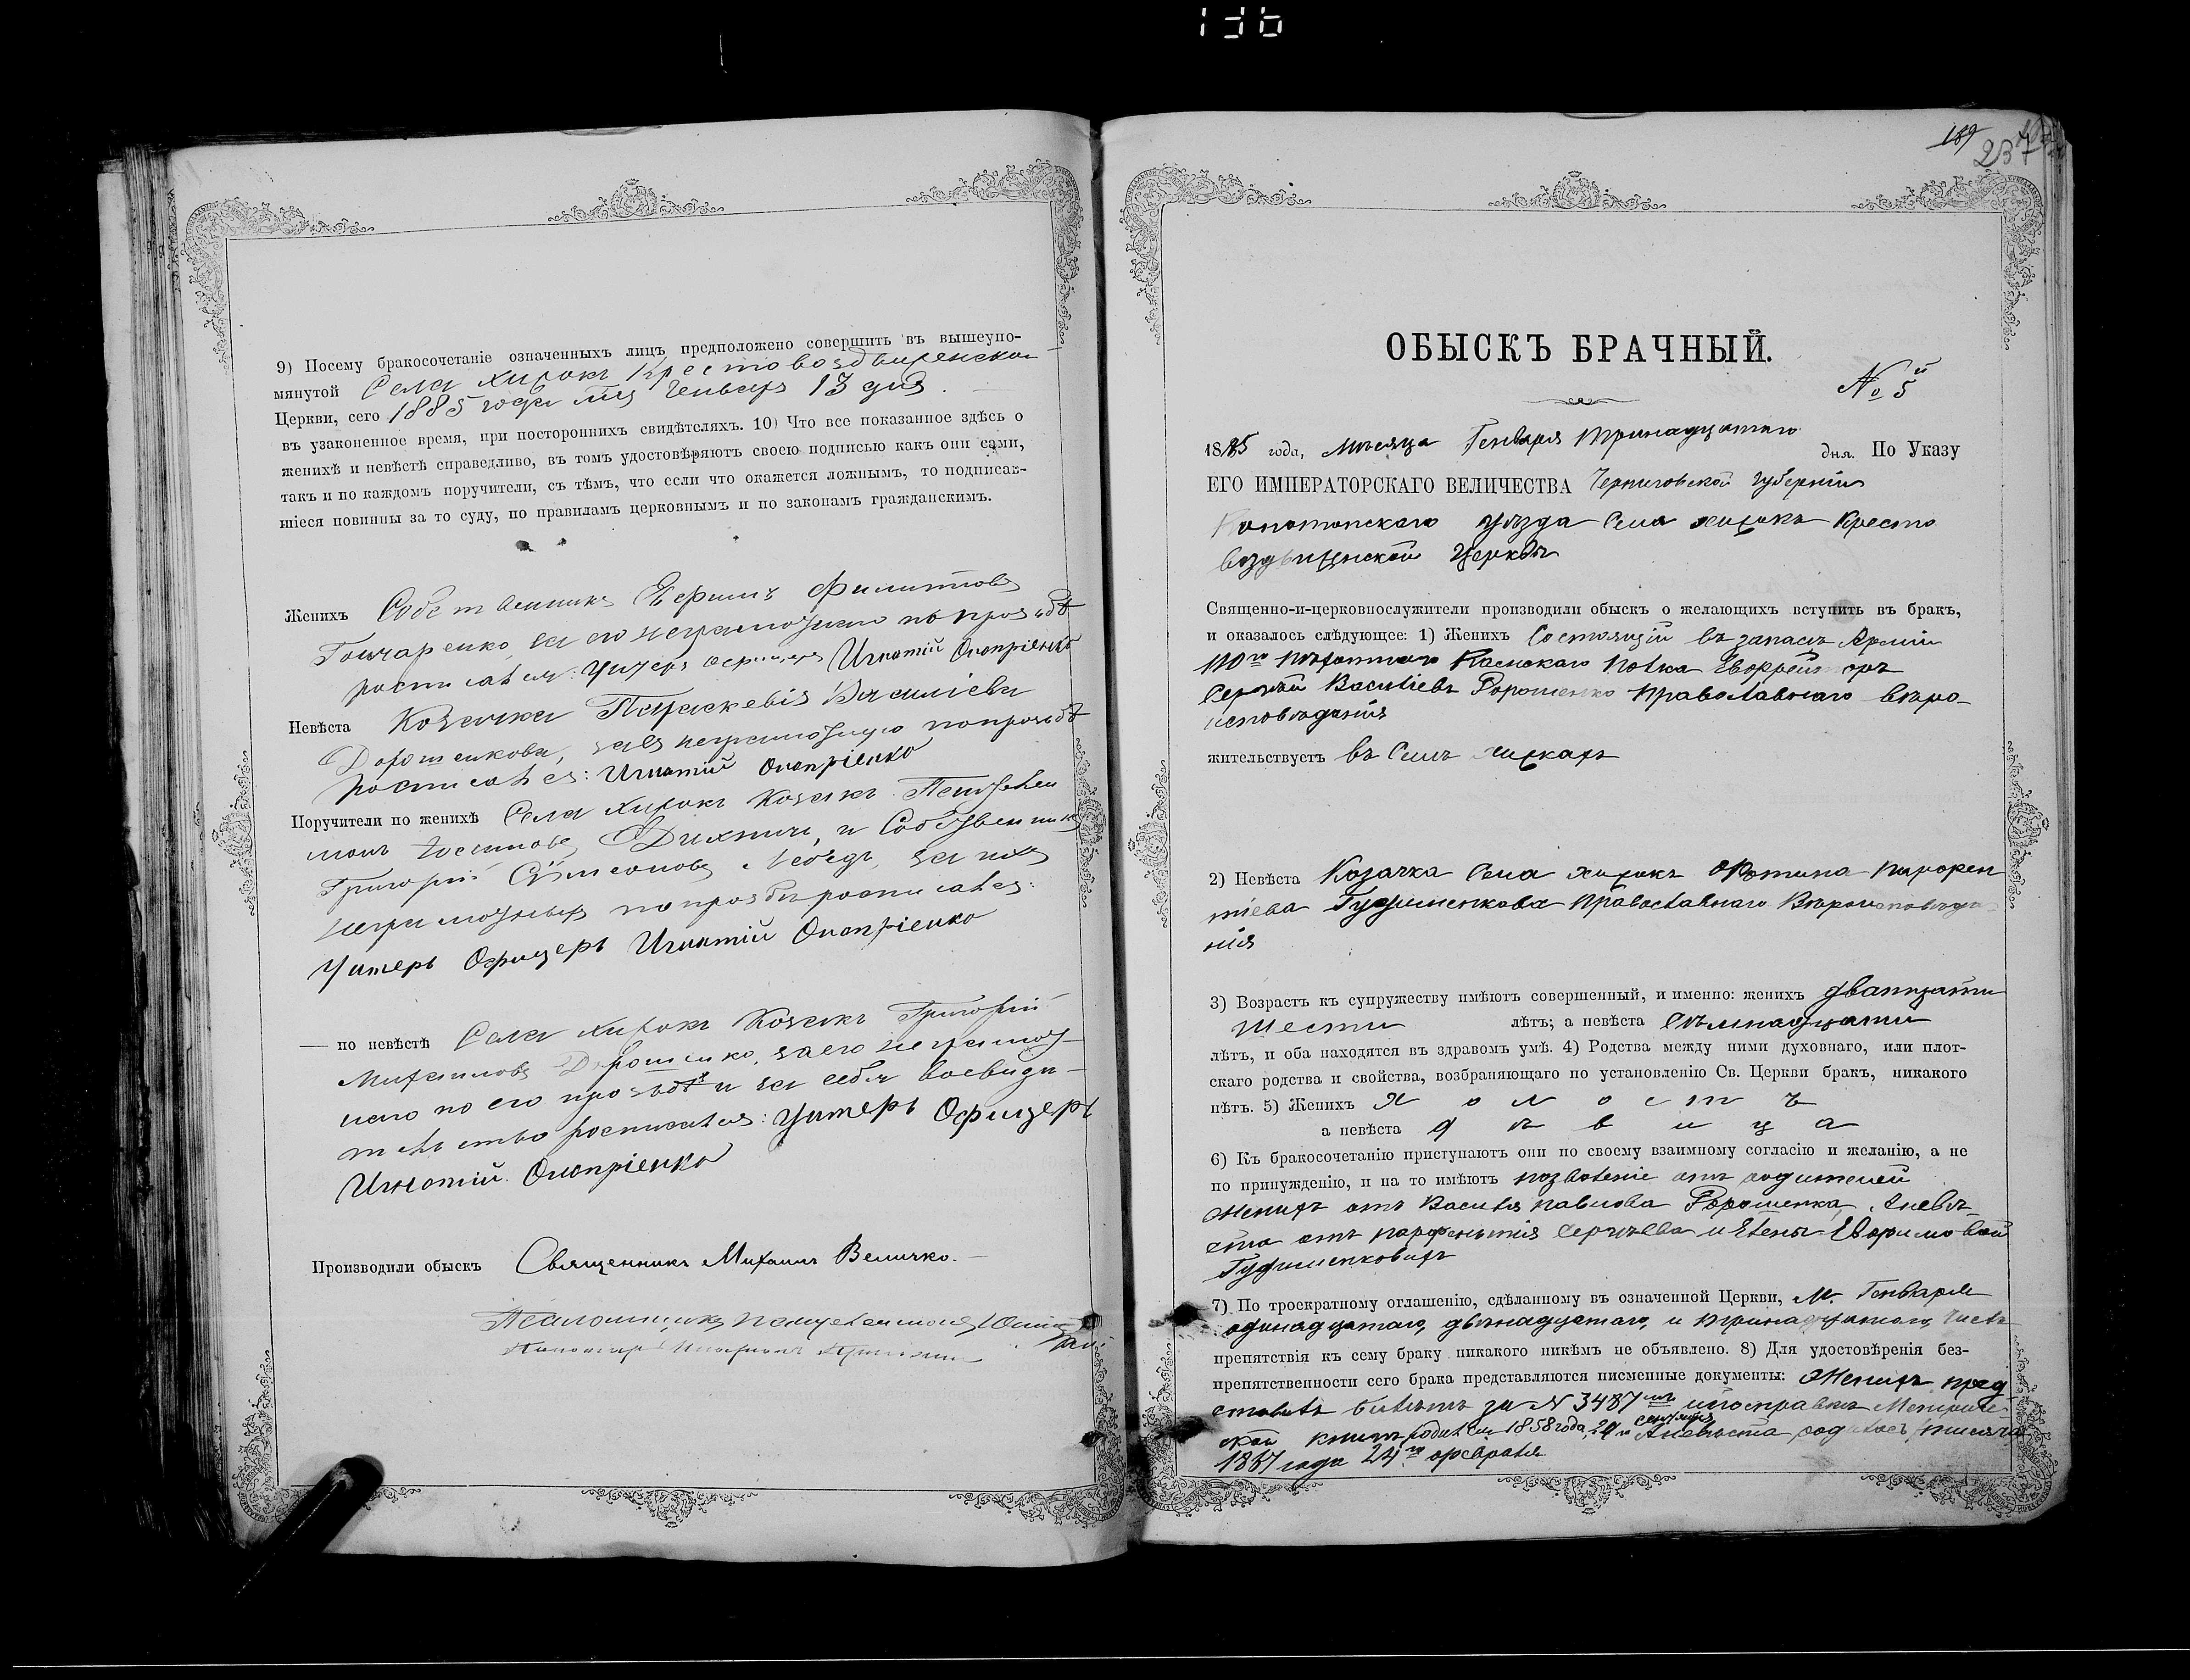 9) Посему бракосочетаніе означенныхъ лицъ предположено совершить въ вышеупо-
мянутой Села Хижокъ Крестовоздвиженской
Церкви, сего 1885 года Генваря 13 дня.
въ узаконенное время, при постороннихъ свидѣтеляхъ. 10) Что все показанное здѣсь о
женихѣ и невѣстѣ справедливо, въ томъ удостовѣряютъ своею подписью какъ они сами,
такъ и по каждомъ поручители, съ тѣмъ, что если что окажется ложнымъ, то подписав-
шіеся повинны за то суду, по правиламъ церковнымъ и по законамъ гражданскимъ.
Женихъ Собственникъ Ефимъ Филиповъ
Гончаренко, за его неграмотнаго по прозьбѣ
росписался: Унтеръ Офицеръ Игнатій Онопріенко
Невѣста Козачка Параскевія Василіева
Дорошенкова, за ея неграмотную по прозьбѣ
росписался: Игнатій Онопріенко
Поручители по женихѣ Села Хижокъ Козакъ Пантелей
Дихничъ, и Собственникъ
Григорій Симеоновъ Лебедь, за нихъ
неграмотныхъ по прозбѣ росписался:
Унтеръ Офицеръ Игнатій Онопріенко
— по невѣстѣ Села Хижокъ Козакъ Григорій
Михайловъ Дорошенко, за его неграмот-
наго по его прозьбѣ и за себя во свиди-
тельство росписался: Унтеръ Офицеръ
Игнатій Онопріенко
Производили обыскъ Священникъ Михаилъ Величко.
Псаломщикъ
Пономарь
189
237
ОБЫСКЪ БРАЧНЫЙ.
№ 5й
1885 года, мѣсяца Генваря тринадцатаго дня. По Указу
ЕГО ИМПЕРАТОРСКАГО ВЕЛИЧЕСТВА Черниговской губерніи
Конотопскаго уѣзда Села Хижокъ Кресто
воздвиженской Церкви
Священно-и-церковнослужители производили обыскъ о желающихъ вступить въ бракъ,
и оказалось слѣдующее: 1) Женихъ Состоящій въ запасѣ Арміи
пѣхотнаго полка Евфрейторъ
Сергѣй Василіевъ Дорошенко православнаго вѣро-
исповѣданія
жительствуетъ въ Селѣ Хижкахъ
2) Невѣста Козачка Села Хижокъ Фотина Парфен
тіева Гудименкова православнаго Вѣроисповѣда-
нія
3) Возрастъ къ супружеству имѣютъ совершенный, и именно: женихъ двапцати
шести лѣтъ; а невѣста семнадцати
лѣтъ, и оба находятся въ здравомъ умѣ. 4) Родства между ними духовнаго, или плот-
скаго родства и свойства, возбраняющаго по установленію Св. Церкви бракъ, никакого
нѣтъ. 5) Женихъ холостъ
а невѣста дѣвица
6) Къ бракосочетанію приступаютъ они по своему взаимному согласію и желанію, а не
по принужденію, и на то имѣютъ позволеніе отъ родителей
Женихъ отъ Василія Павлова Дорошенка, Аневѣ-
ста отъ парфентія Сергѣева и Елены Евфимовой
Гудименковыхъ
7) По троекратному оглашенію, сдѣланному въ означенной Церкви, м. Генваря
одинадцатаго, двѣнадцатаго, и тринадцатаго, числъ
препятствія къ сему браку никакого никѣмъ не объявлено. 8) Для удостовѣренія без-
препятственности сего брака представляются писменные документы: Женихъ пред
ставилъ билетъ за N 3487 ипосправкѣ Метриче-
ской книгѣ родился 1858 года, 29 сентября Аневѣста родилась тисяча
1867 года 24го февраля